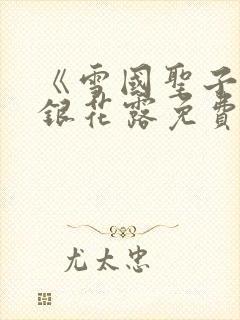 《雪國聖子
銀花露免費
尤太忠